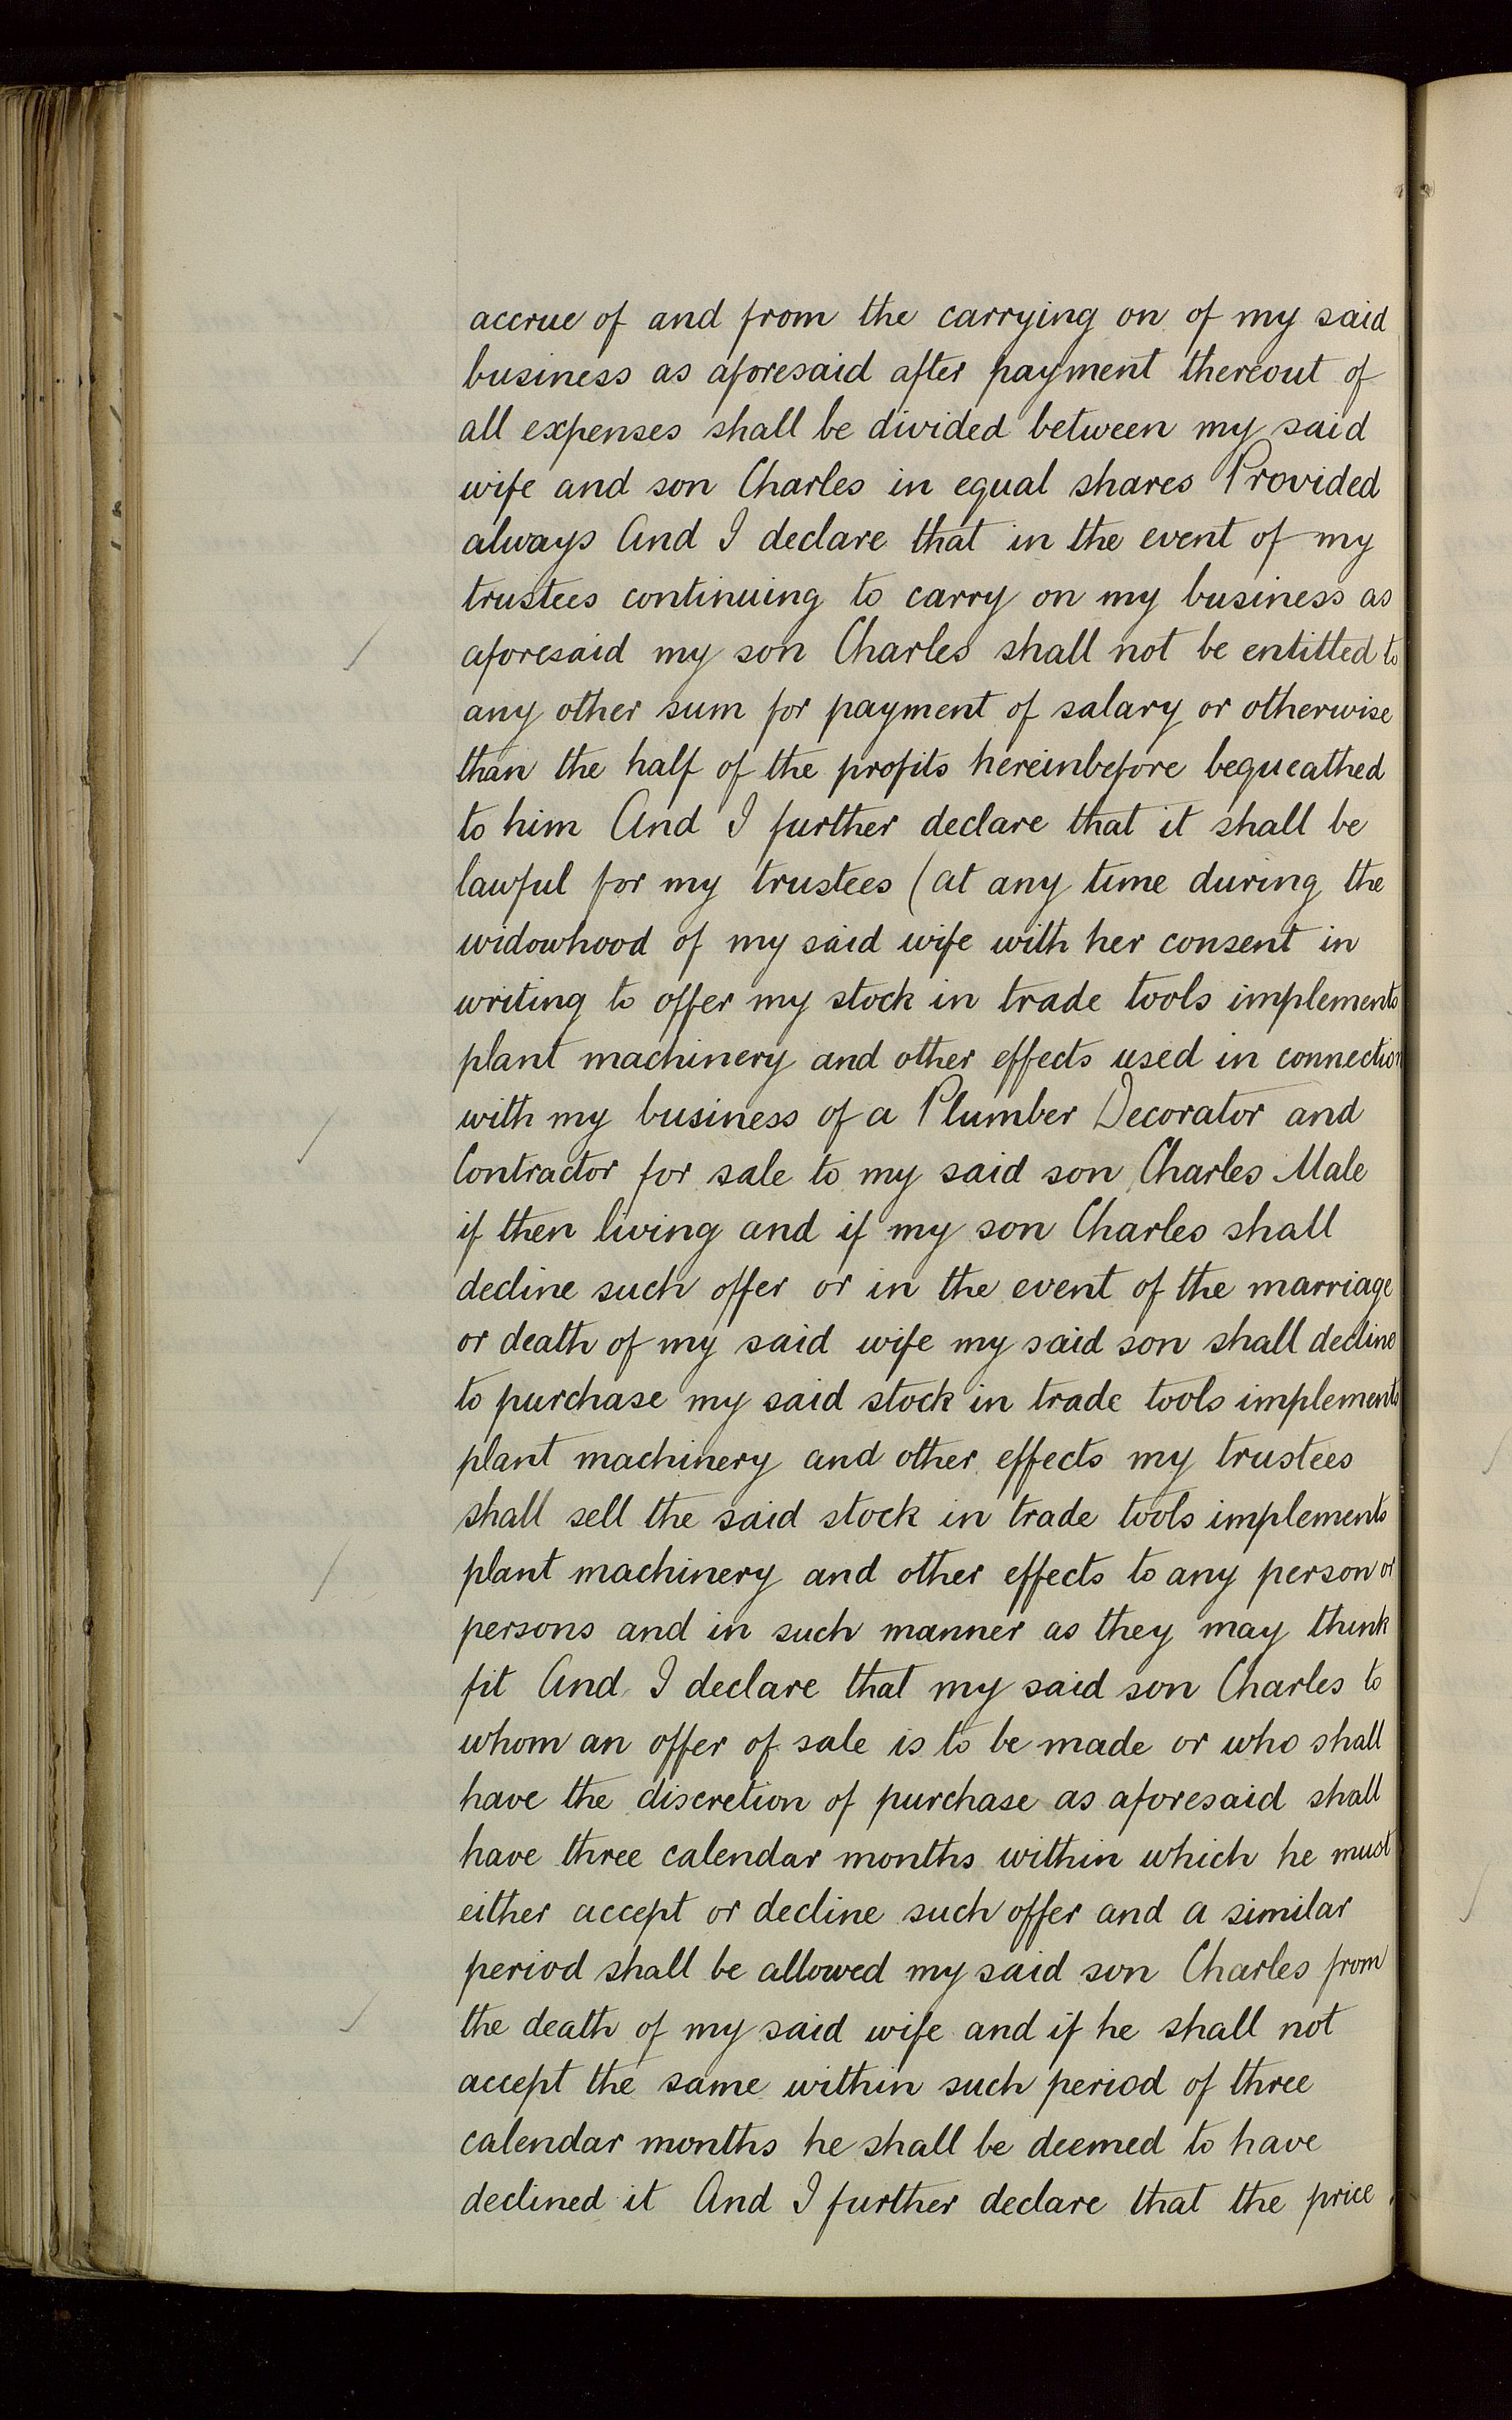 accrue of and from the carrying on of my said
business as aforesaid after payment thereout of
all expenses shall be divided between my said
wife and son Charles in equal shares Provided
always And I declare that in the event of my
trustees continuing to carry on my business as
aforesaid my son Charles shall not be entitled to
any other sum for payment of salary or otherwise
than the half of the profits hereinbefore bequeathed
to him And I further declare that it shall be
lawful for my trustees (at any time during the
widowhood of my said wife with her consent in
writing to offer my stock in trade tools implements
plant machinery and other effects used in connection
with my business of a Plumber Decorator and
Contractor for sale to my said son Charles Male
if then living and if my son Charles shall
decline such offer or in the event of the marriage
or death of my said wife my said son shall decline
to purchase my said stock in trade tools implements
plant machinery and other effects my trustees
shall sell the said stock in trade tools implements
plant machinery and other effects to any person or
persons and in such manner as they may think
fit And I declare that my said son Charles to
whom an offer of sale is to be made or who shall
have the discretion of purchase as aforesaid shall
have three calendar months within which he must
either accept or decline such offer and a similar
period shall be allowed my said son Charles from
the death of my said wife and if he shall not
accept the same within such period of three
calendar months he shall be deemed to have
declined it And I further declare that the price